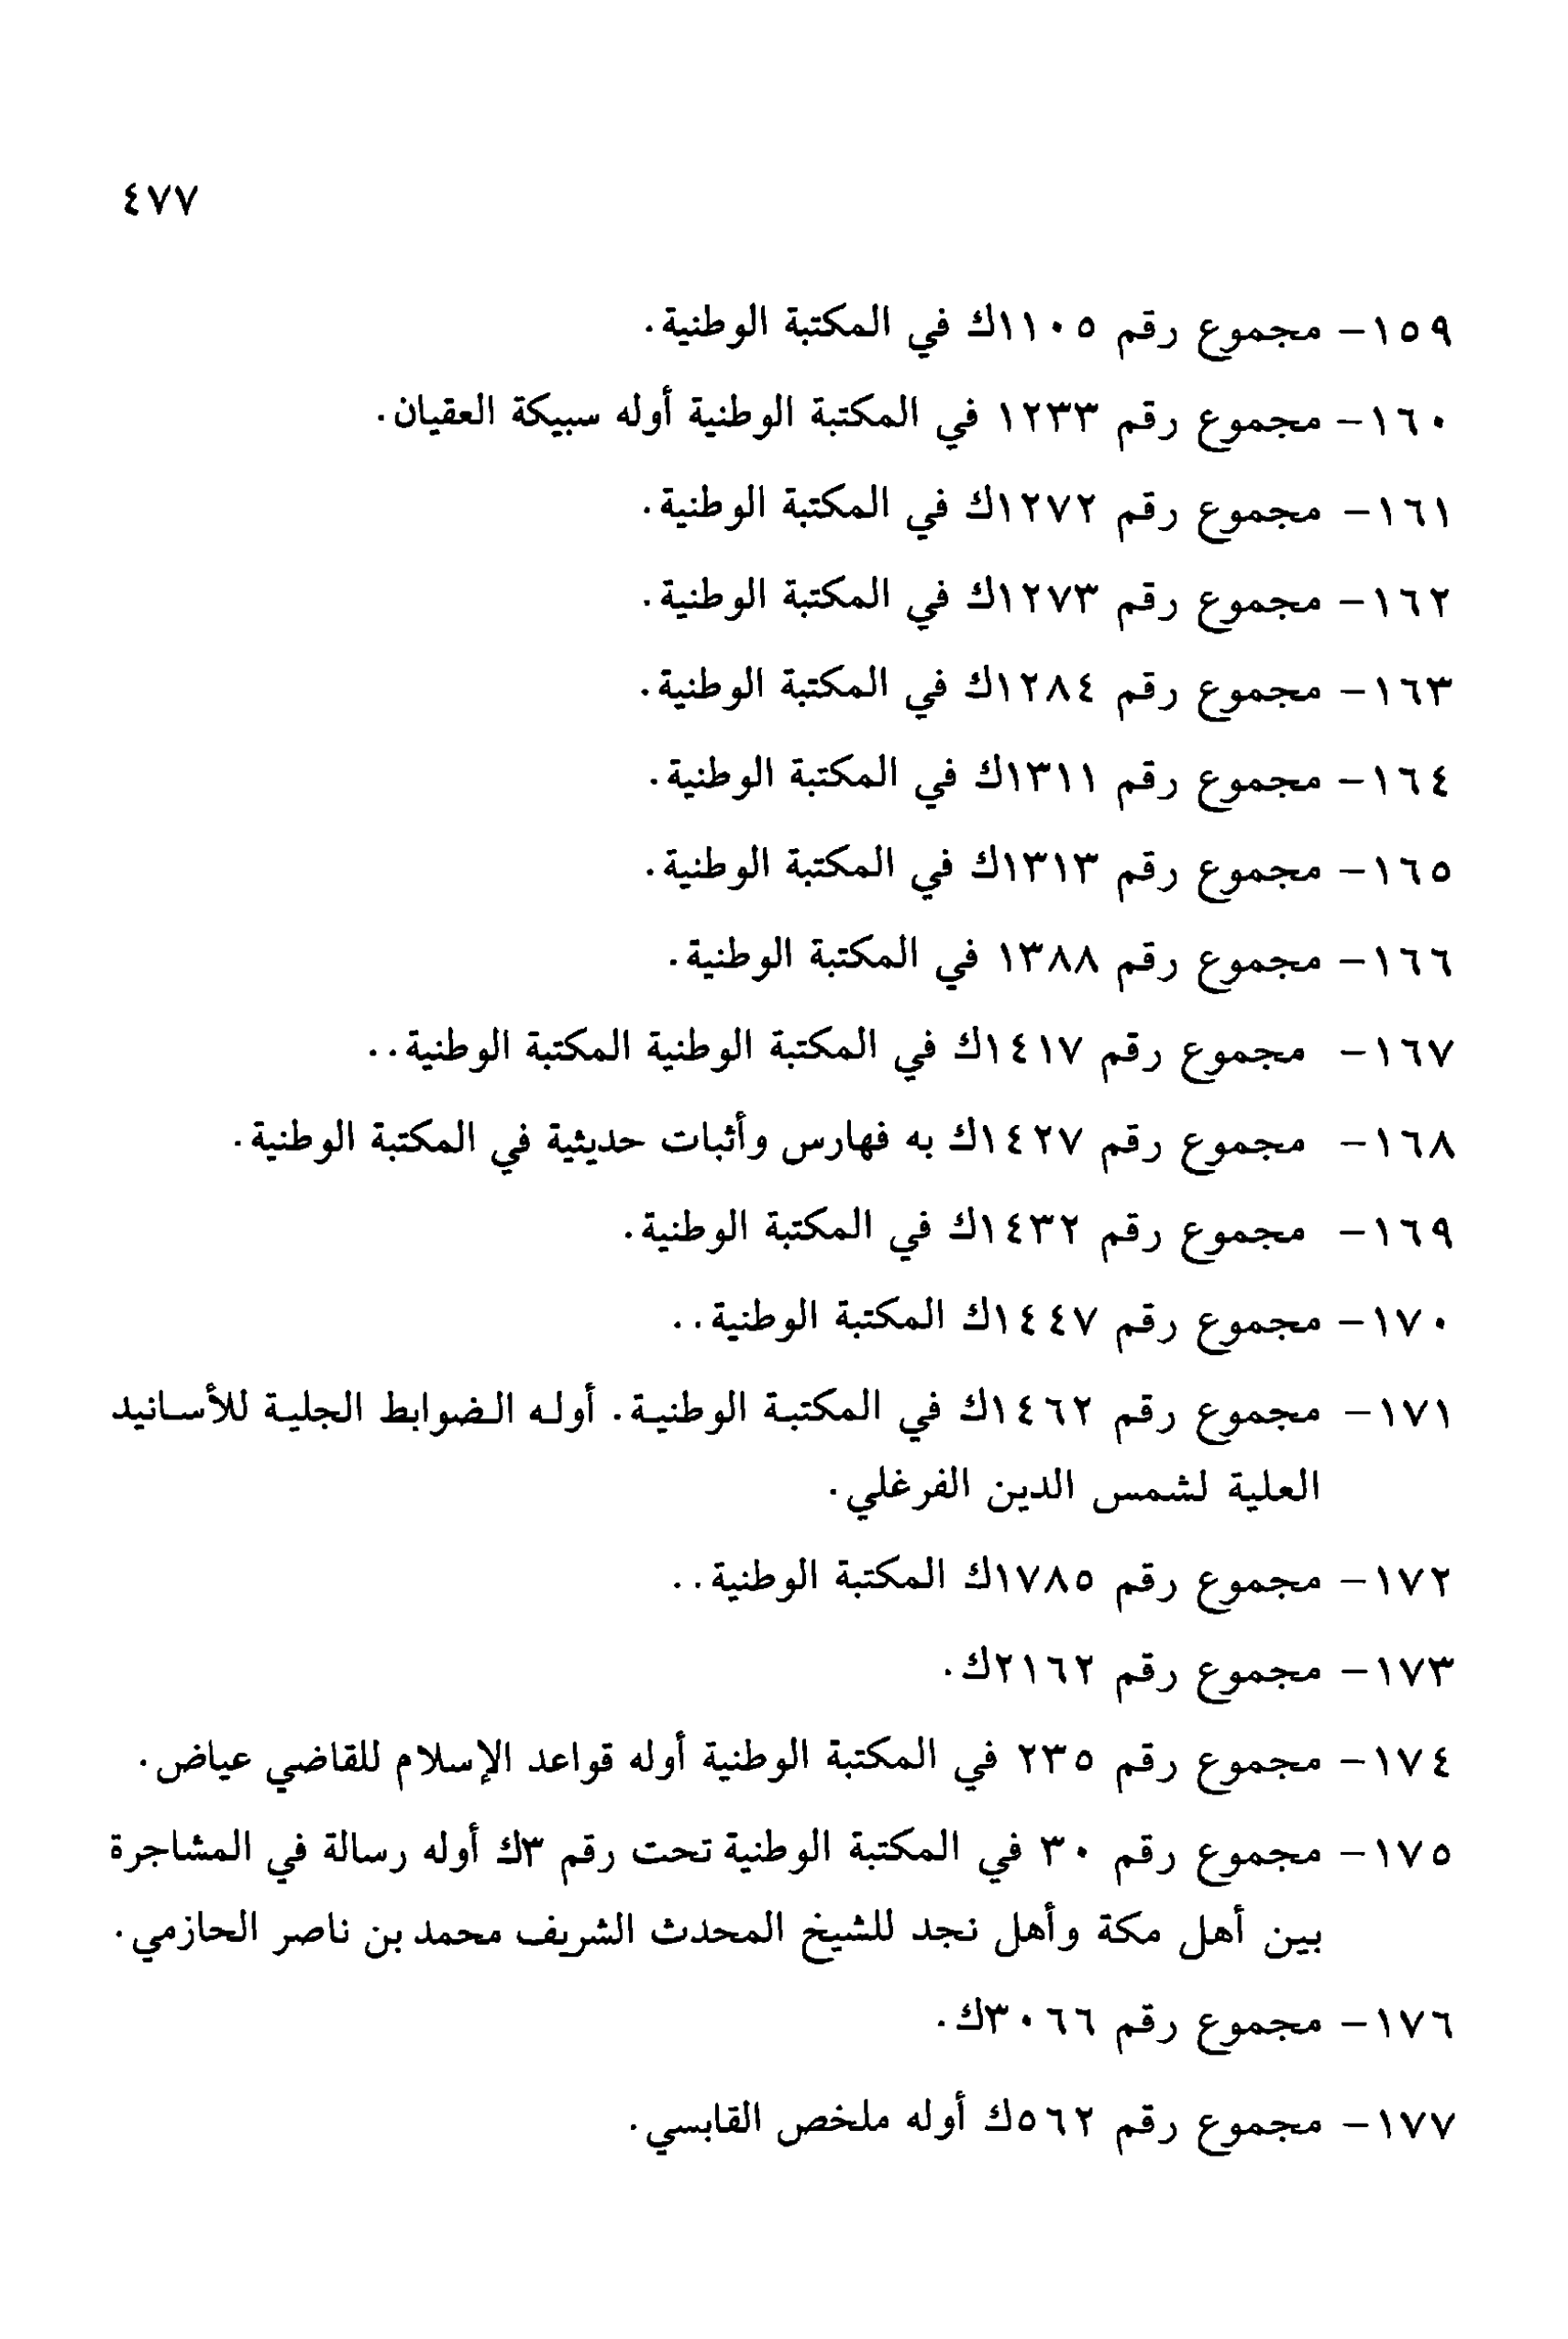 ٤٧٧
١٥٩- مجموع رقم ١١٠٥ك في المكتبة الوطنية.
١٦٠- مجموع رقم ١٢٣٣ في المكتبة الوطنية أوله سبيكة العقيان.
١٦١- مجموع رقم ١٢٧٢ك في المكتبة الوطنية.
١٦٢- مجموع رقم ١٢٧٣ك في المكتبة الوطنية.
١٦٣- مجموع رقم ١٢٨٤ك في المكتبة الوطنية.
١٦٤- مجموع رقم ١٣١١ك في المكتبة الوطنية.
١٦٥- مجموع رقم ١٣١٣ك في المكتبة الوطنية.
١٦٦- مجموع رقم ١٣٨٨ في المكتبة الوطنية.
١٦٧- مجموع رقم ١٤١٧ك في المكتبة الوطنية المكتبة الوطنية..
١٦٨- مجموع رقم ١٤٢٧ك به فهارس وأثبات حديثية في المكتبة الوطنية.
١٦٩- مجموع رقم ١٤٣٢ك في المكتبة الوطنية.
١٧٠- مجموع رقم ١٤٤٧ك المكتبة الوطنية..
١٧١- مجموع رقم ١٤٦٢ك في المكتبة الوطنية. أوله الضوابط الجلية للأسانيد
العلية لشمس الدين الفرغلي.
١٧٢- مجموع رقم ١٧٨٥ك المكتبة الوطنية..
١٧٣- مجموع رقم ٢١٦٢ك.
١٧٤- مجموع رقم ٢٣٥ في المكتبة الوطنية أوله قواعد الإسلام للقاضي عياض.
١٧٥- مجموع رقم ٣٠ في المكتبة الوطنية تحت رقم ٣ك أوله رسالة في المشاجرة
بين أهل مكة وأهل نجد للشيخ المحدث الشريف محمد بن ناصر الحازمي.
١٧٦- مجموع رقم ٣٠٦٦ك.
١٧٧- مجموع رقم ٥٦٢ك أوله ملخص القابسي.